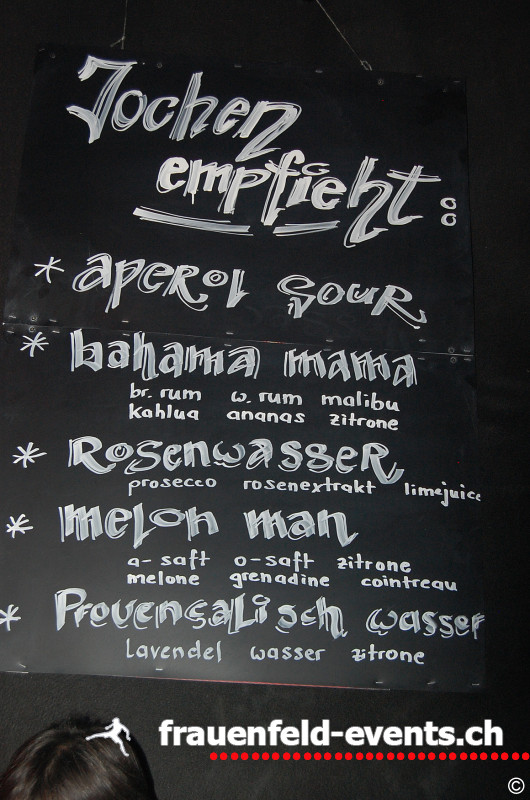 Jochen
empfieht:
* aperol sour
* bahama mama
br. rum w. rum malibu
kahlua ananas zitrone
* Rosenwasser
prosecco rosenextrakt limejuice
* melon man
a-saft o-saft zitrone
melone grenadine cointreau
* Provensalisch wasser
lavendel wasser zitrone
frauenfeld-events.ch
©